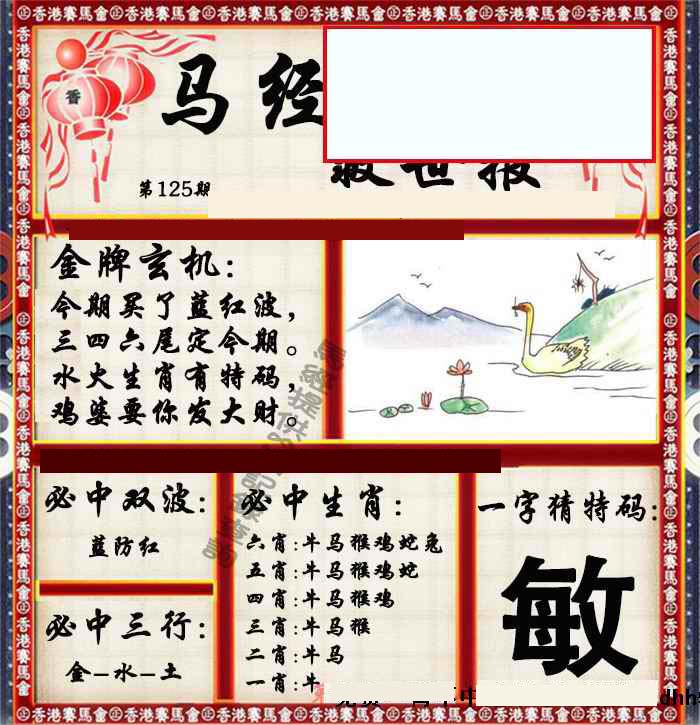 香港賽馬會
香
马经
救世报
第125期
金牌玄机：
今期买了蓝红波，
三四六尾定今期。
水火生肖有特码，
鸡婆要你发大财。
必中双波：
蓝防红
必中三行：
金-水-土
必中生肖：
六肖:牛马猴鸡蛇兔
五肖:牛马猴鸡蛇
四肖:牛马猴鸡
三肖:牛马猴
二肖:牛马
一肖:牛
一字猜特码:
敏